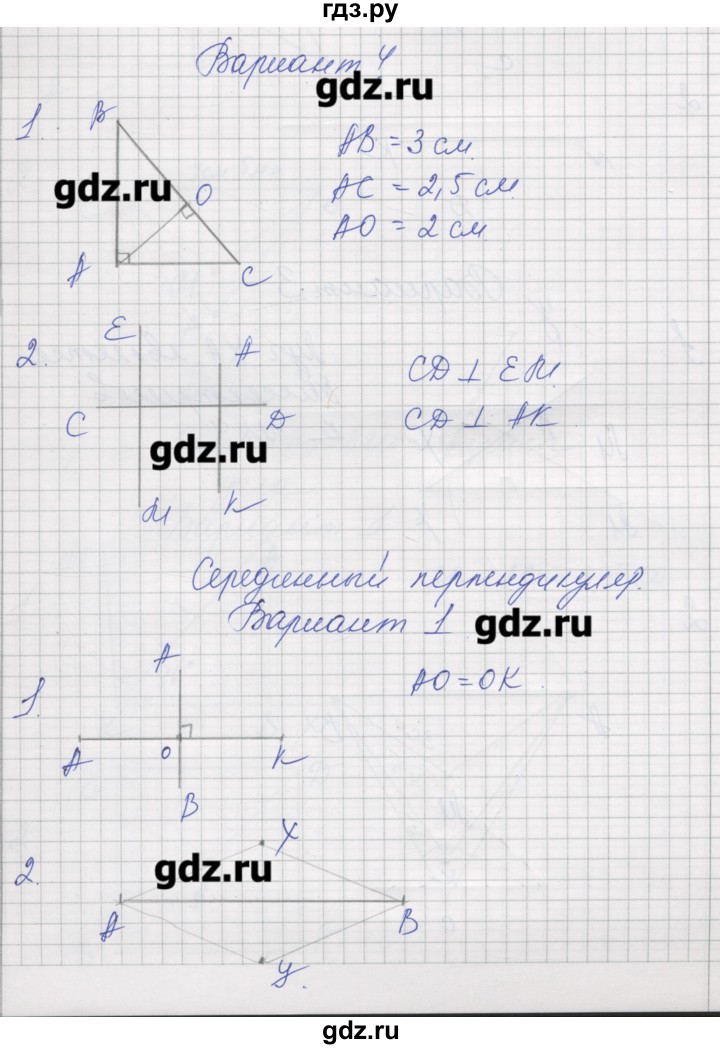 гдз.ру
Вариант 4
gdz.ru
1.
B
AB = 3 см
gdz.ru
O
AC = 2,5 см
AO = 2 см
A
C
E
2.
A
CD ⊥ EM
C
D
CD ⊥ AK
gdz.ru
M
K
Серединный перпендикуляр.
Вариант 1
gdz.ru
A
AO = OK
1.
A
O
K
B
X
2.
gdz.ru
A
B
Y.
gdz.ru